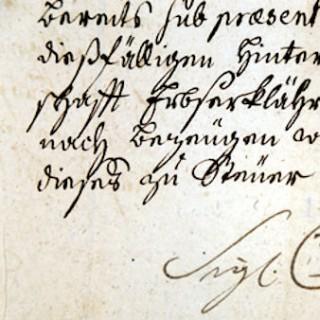 bereits sub præsent
dießfälligen Hinter
schafft Erbserklähr
nach bezeügen
dieses zu Steüer
Sigl.